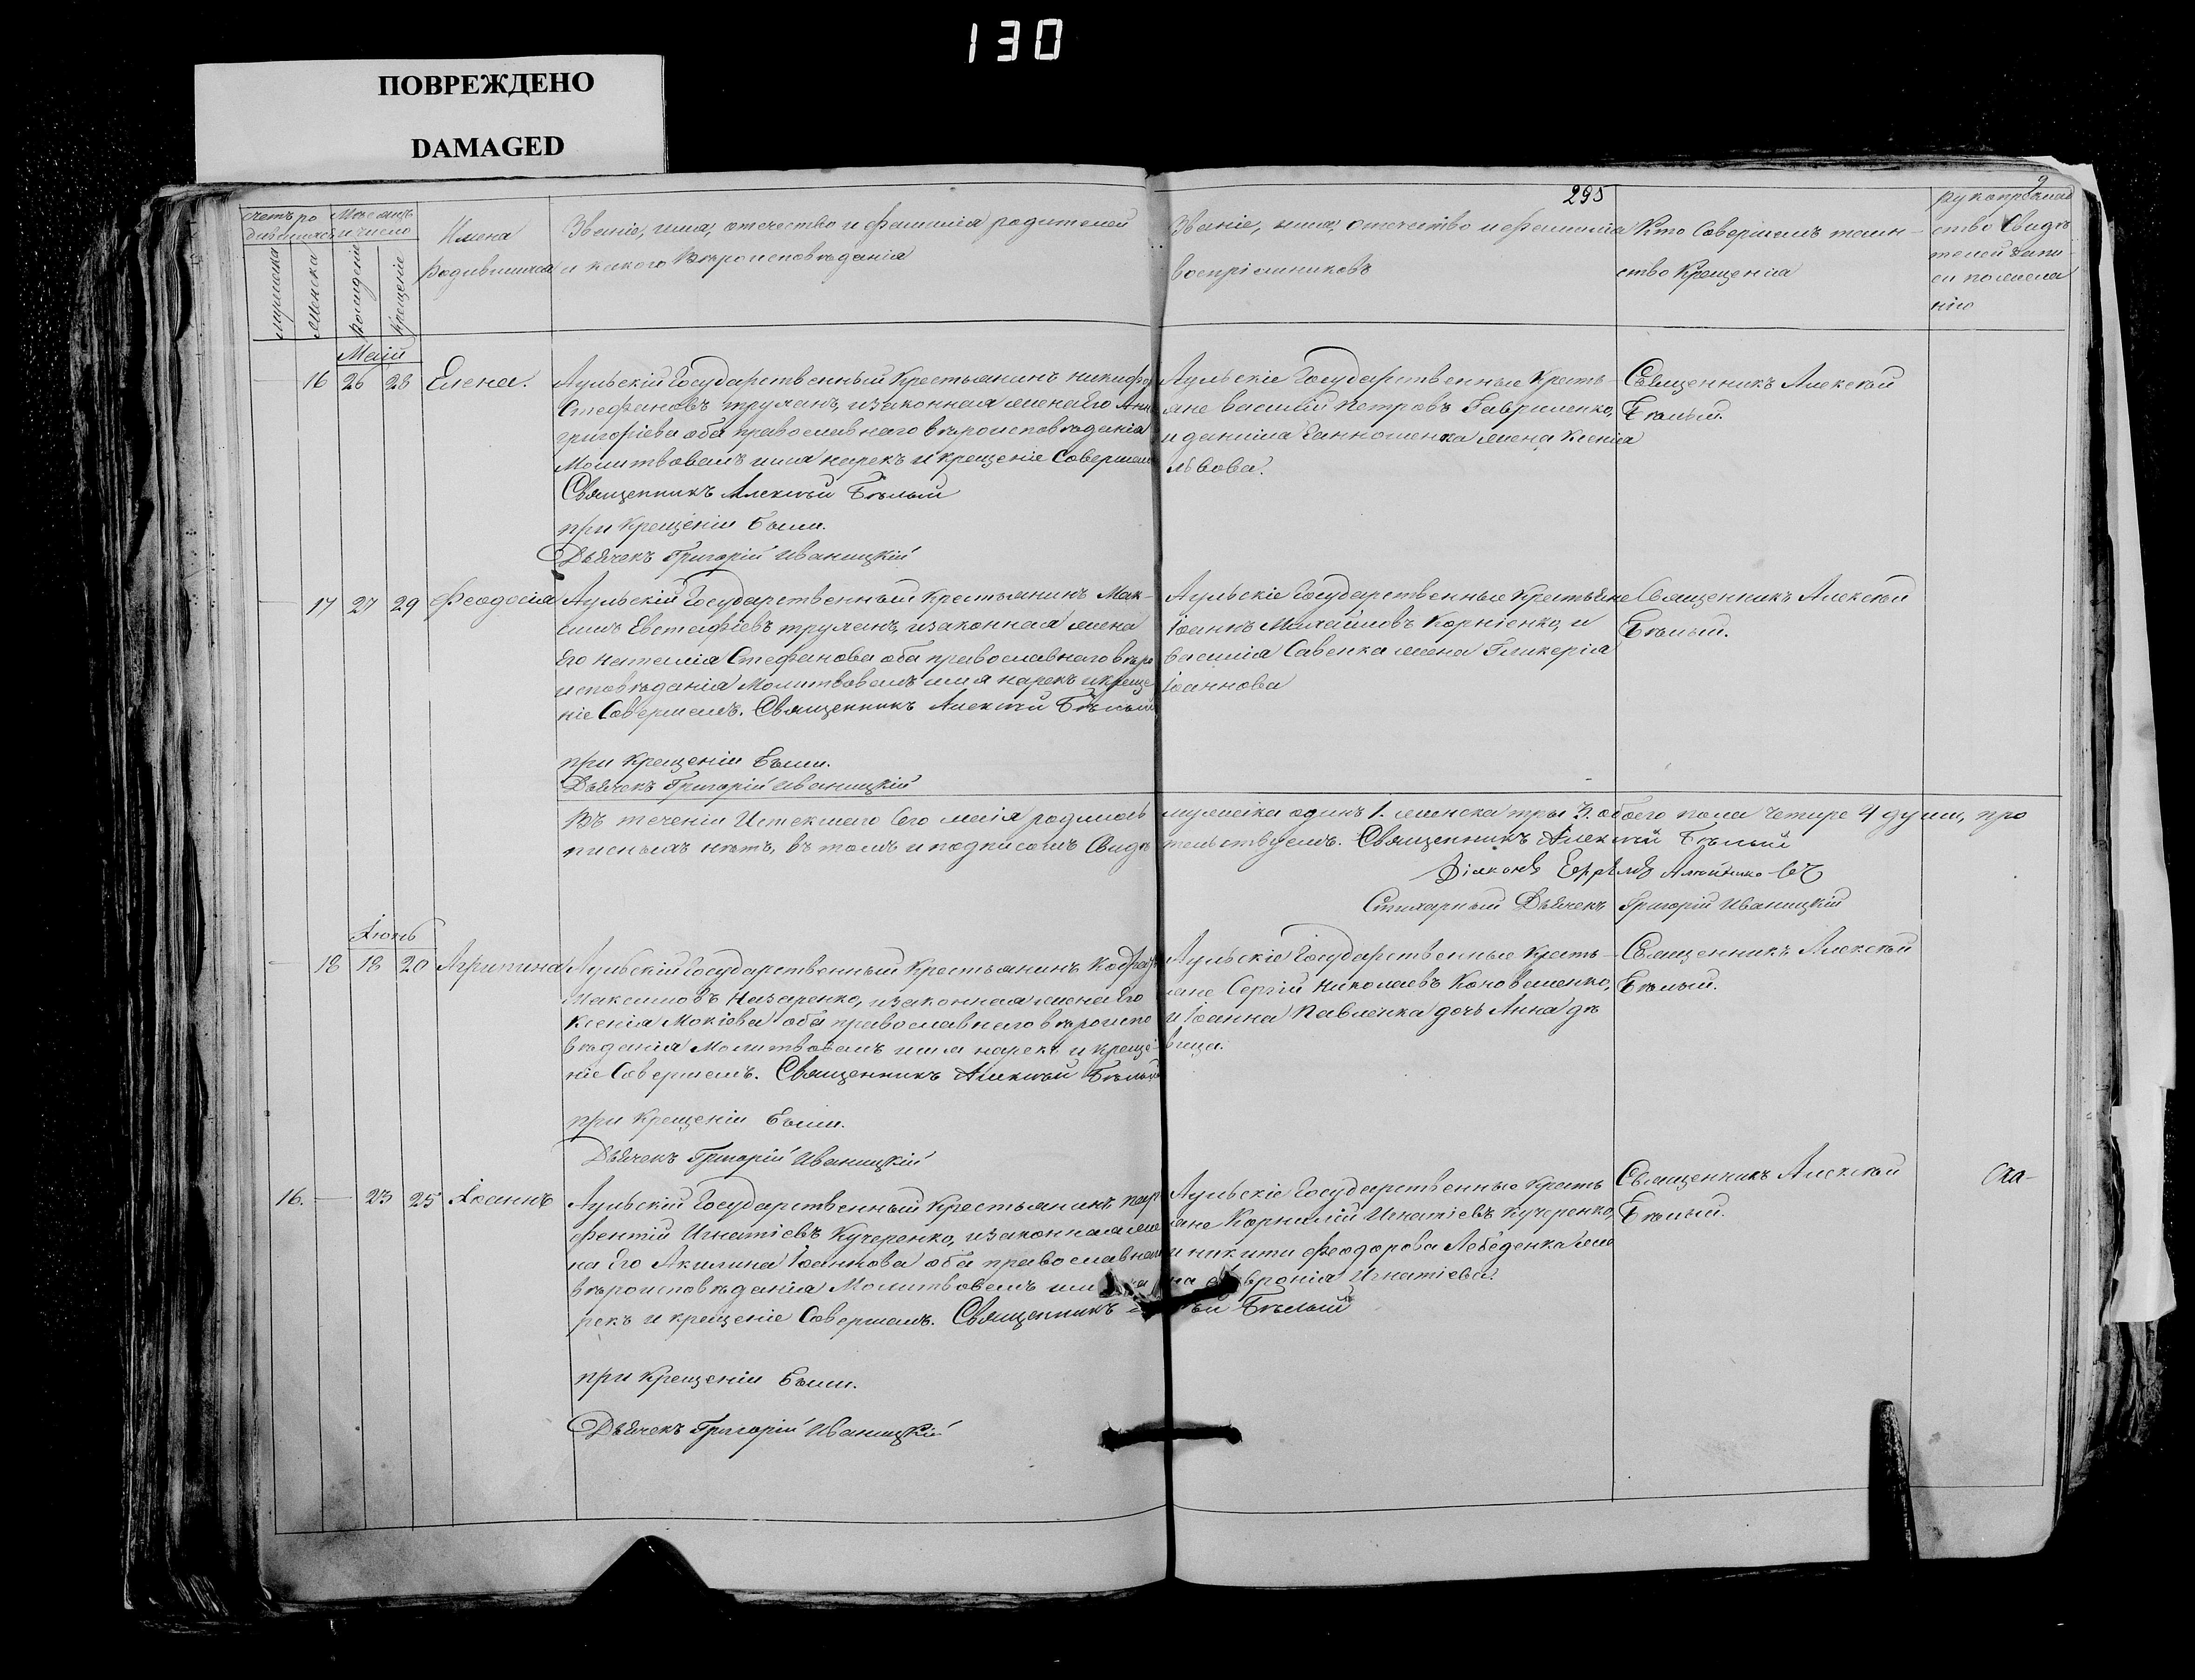 130
ПОВРЕЖДЕНО
DAMAGED
295
9
счетъ ро
дившихся
Мѣсяцъ
и число
мужеска
женска
рожденіе
крещеніе
Имена
родившихся
Званіе, имя, отечество и фамилія родителей
и какого вѣроисповѣданія
Званіе, имя, отечество и фамилія
воспріемниковъ
Кто совершалъ таин-
ство Крещенія
рукоприклад
ство Свидѣ
телей запи
си по жела
нію
Маій
16 26 28 Елена.
Аульскій Государственный Крестьянинъ никифо
Стефановъ труханъ, изаконная жена Его Анн
григоріева оба православнаго вѣроисповѣданія
Молитвовалъ имя нарекъ и крещеніе Совершалъ
Священникъ Алексѣй Бѣлый
при Крещеніи были.
Дьячекъ Григорій Иваницкій
Аульскіе Государственные Кресть-
яне василій петровъ Гавриленко,
и данила Ганношенка жена Ксенія
львова.
Священникъ Алексѣй
Бѣлый.
17 27 29 Феодосія
Аульскій Государственный Крестьянинъ Мак-
симъ Евстафіевъ труханъ, изаконная жена
Его наталія Стефанова оба православнаго вѣро
исповѣданія Молитвовалъ имя нарекъ и креще
ніе Совершалъ. Священникъ Алексѣй Бѣлый
при Крещеніи были.
Дьячекъ Григорій Иваницкій
Аульскіе Государственные Крестьяне
Іоаннъ Михайловъ Корніенко, и
василія Савенка жена Гликерія
Іоаннова
Священникъ Алексѣй
Бѣлый.
Въ теченіи Истекшаго Сего маія родилось мужеска одинъ 1. женска тры 3. обоего пола четыре 4 души, про
писныхъ нѣтъ, въ томъ и подписомъ Свидѣтельствуемъ. Священникъ Алексѣй Бѣлый
Діаконъ Ефремъ
Стихарный Дьячекъ Григорій Иваницкій
Іюнь
18 18 20 Агрипина
Аульскій Государственный Крестьянинъ Кодрат
Максимовъ Назаренко, изаконная жена Его
Ксенія Мокіева оба православнаго вѣроиспо
вѣданія Молитвовалъ имя нарекъ и креще-
ніе Совершалъ. Священникъ Алексѣй Бѣлый
при Крещеніи были.
Дьячекъ Григорій Иваницкій
Аульскіе Государственные Кресть-
яне Сергій николаевъ Коноваленко,
и Іоанна Павленка дочь Анна дѣ
вица.
Священникъ Алексѣй
Бѣлый.
16. 23 25 Іоаннъ
Аульскій Государственный Крестьянинъ пар
фентій Игнатіевъ Кучеренко, изаконная же
на Его Акилина Іоаннова оба православнаго
вѣроисповѣданія Молитвовалъ имя на
рекъ и крещеніе Совершалъ. Священникъ Алексѣй Бѣлый
при Крещеніи были.
Дьячекъ Григорій Иваницкій
Аульскіе Государственные Кресть
яне Корнилій Игнатіевъ Кучеренко,
и никити феодорова Лебеденка же
на Февронія Игнатіева.
Священникъ Алексѣй
Бѣлый.
Ска-